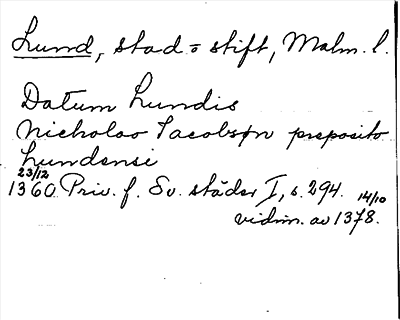 Lund, stad o stift, Malm. l.
Datum Lundis
Nicholao Jacobsøn preposito
Lundensi
23/12
1360 Priv. f. Sv. städer I, s. 294. 14/10
vidim. av 1378.